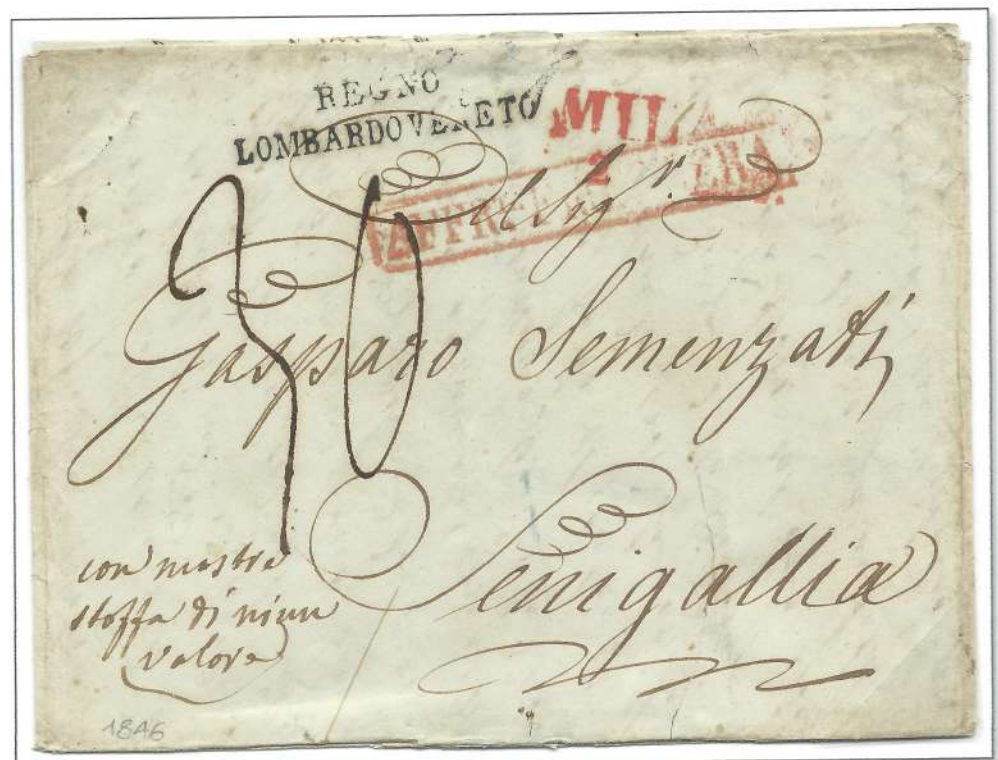 REGNO
LOMBARDO VENETO
MIL
2
Al Sigr.
30
Gasparo Semenzati
Senigallia
con mostra
stoffa di niun
valore
1846